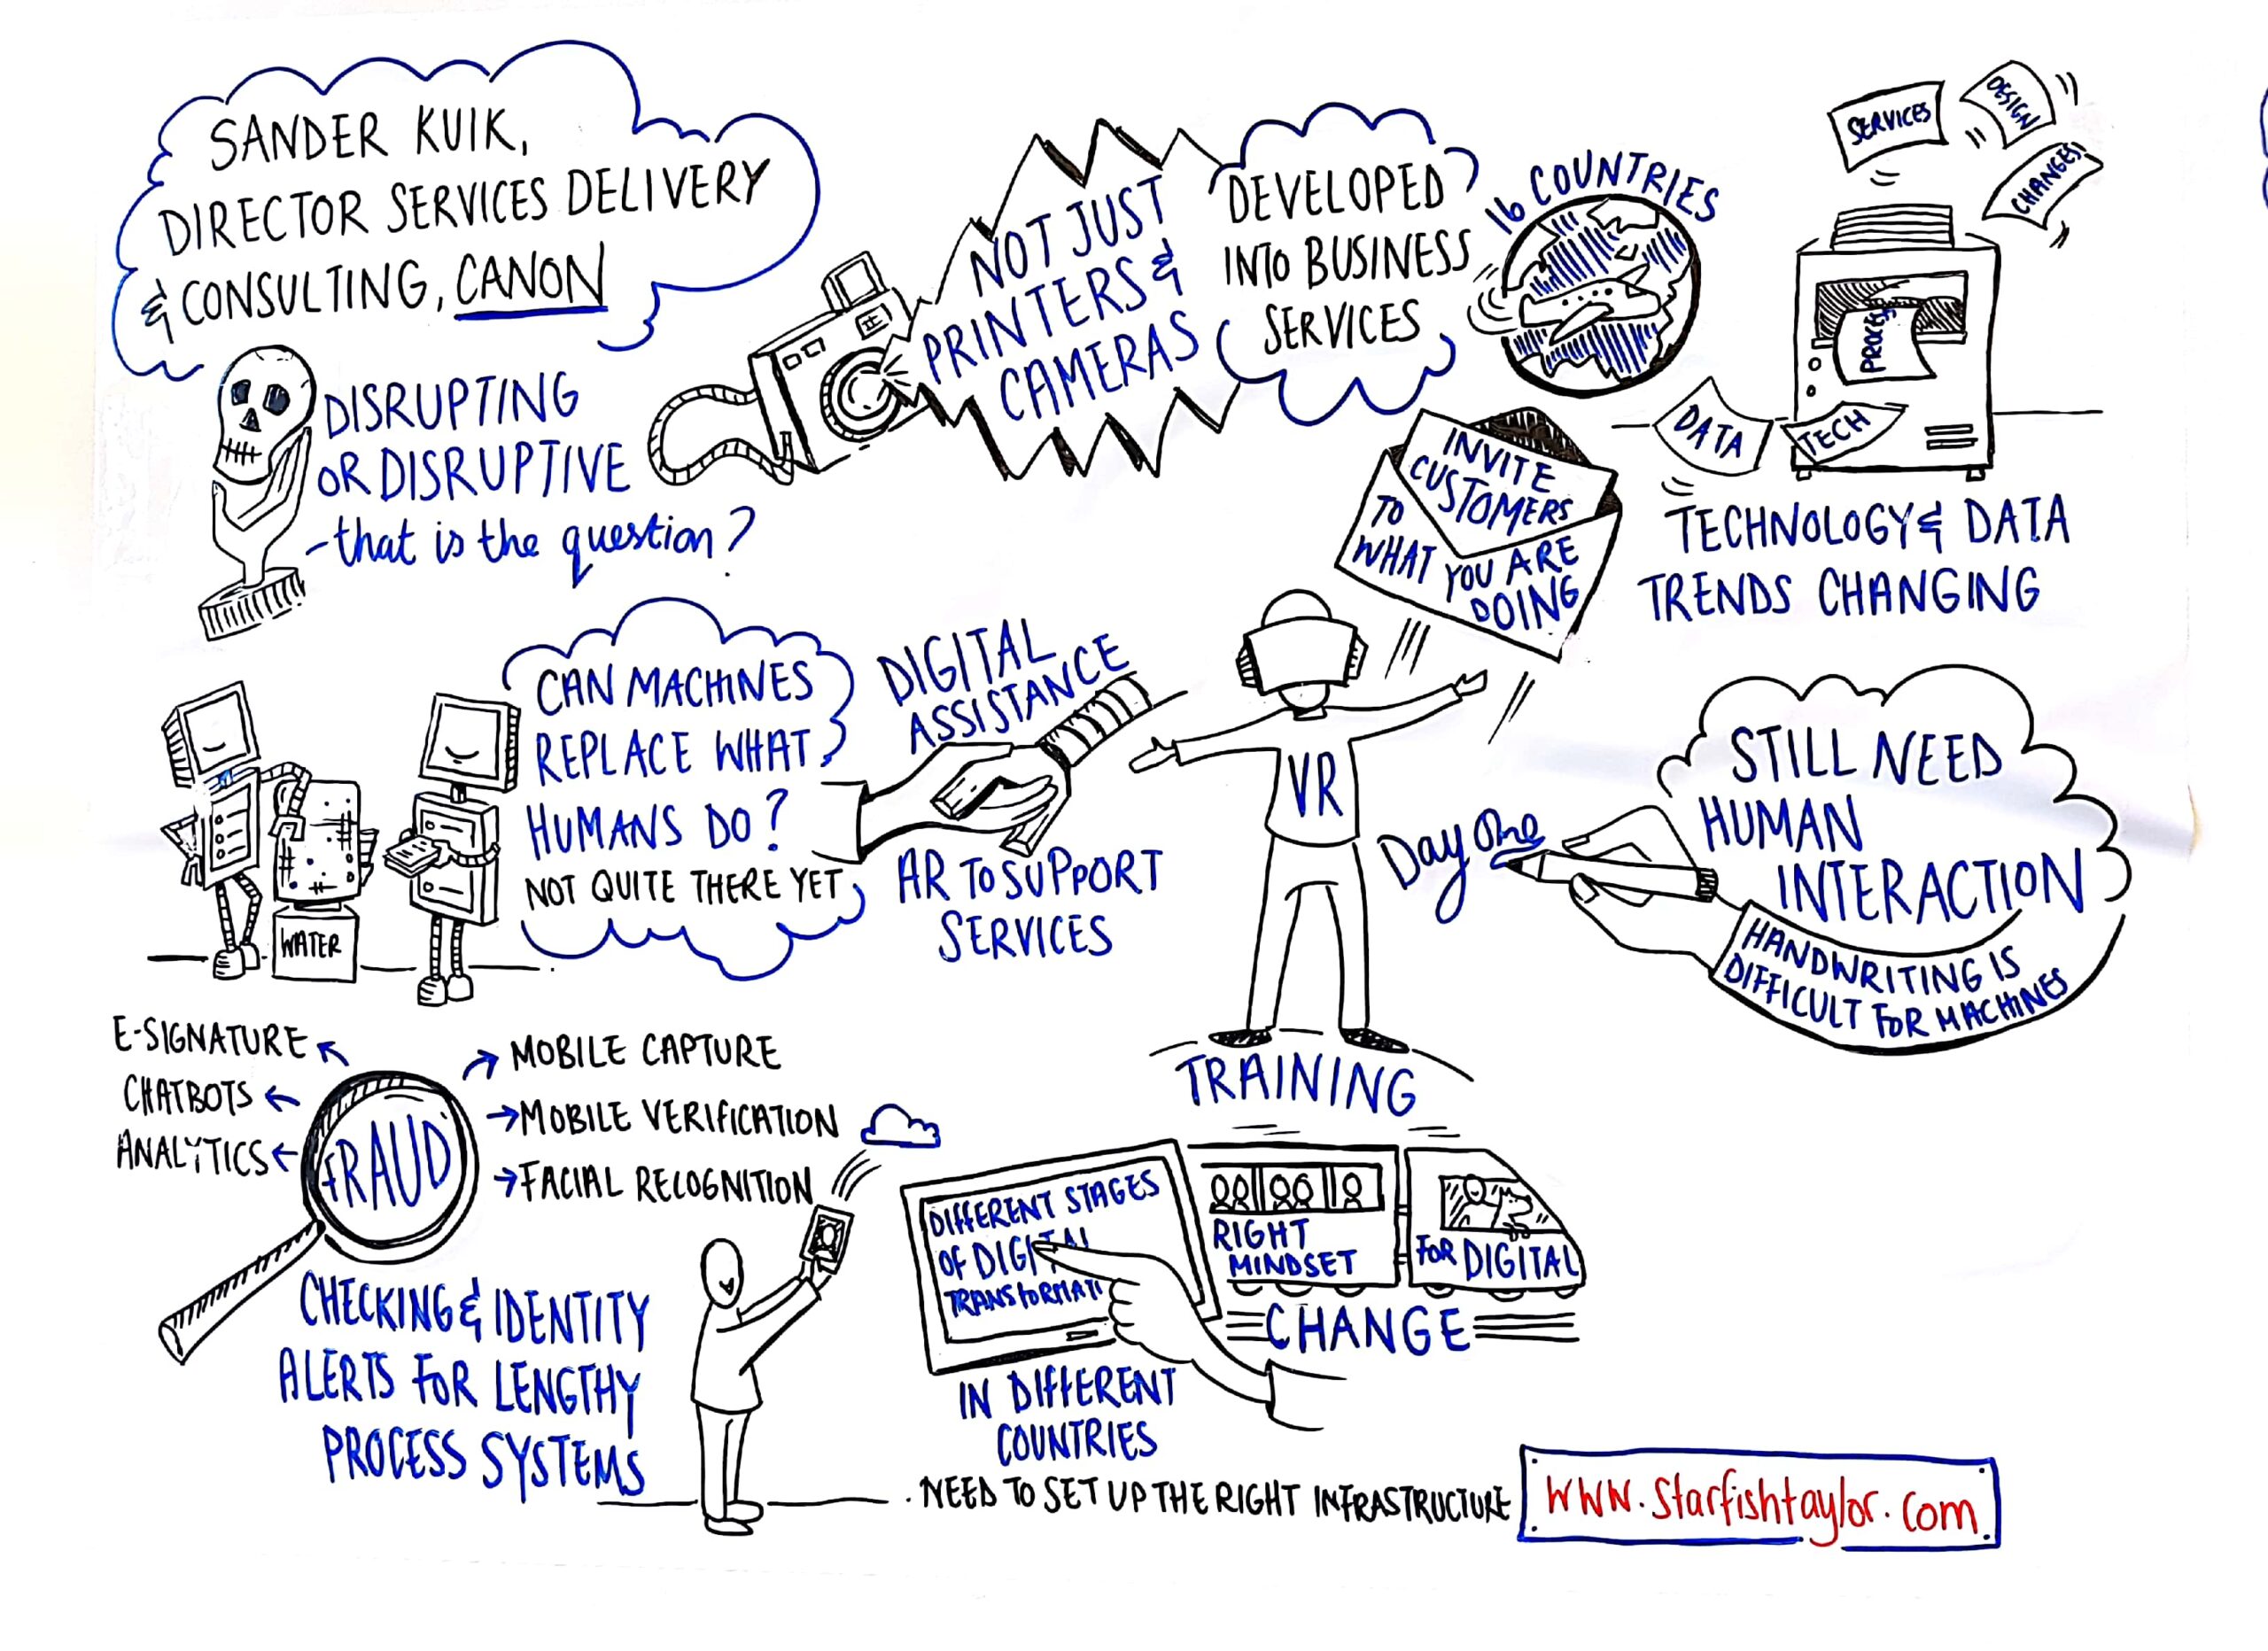 SANDER KUIK,
DIRECTOR SERVICES DELIVERY
& CONSULTING, CANON
DISRUPTING
OR DISRUPTIVE
- that is the question?
NOT JUST
PRINTERS &
CAMERAS
DEVELOPED
INTO BUSINESS
SERVICES
16 COUNTRIES
SERVICES
DESIGN
CHANGES
PROCESS
DATA
TECH
TECHNOLOGY & DATA
TRENDS CHANGING
INVITE
CUSTOMERS
TO
WHAT YOU ARE
DOING
CAN MACHINES
REPLACE WHAT
HUMANS DO?
NOT QUITE THERE YET
WATER
DIGITAL
ASSISTANCE
AR TO SUPPORT
SERVICES
VR
TRAINING
Day One
STILL NEED
HUMAN
INTERACTION
HANDWRITING IS
DIFFICULT FOR MACHINES
E-SIGNATURE
CHATBOTS
ANALYTICS
FRAUD
MOBILE CAPTURE
MOBILE VERIFICATION
FACIAL RECOGNITION
CHECKING & IDENTITY
ALERTS FOR LENGTHY
PROCESS SYSTEMS
DIFFERENT STAGES
OF DIGITAL
TRANSFORMATI
IN DIFFERENT
COUNTRIES
RIGHT
MINDSET
FOR DIGITAL
CHANGE
. NEED TO SET UP THE RIGHT INFRASTRUCTURE
WWW.starfishtaylor.com